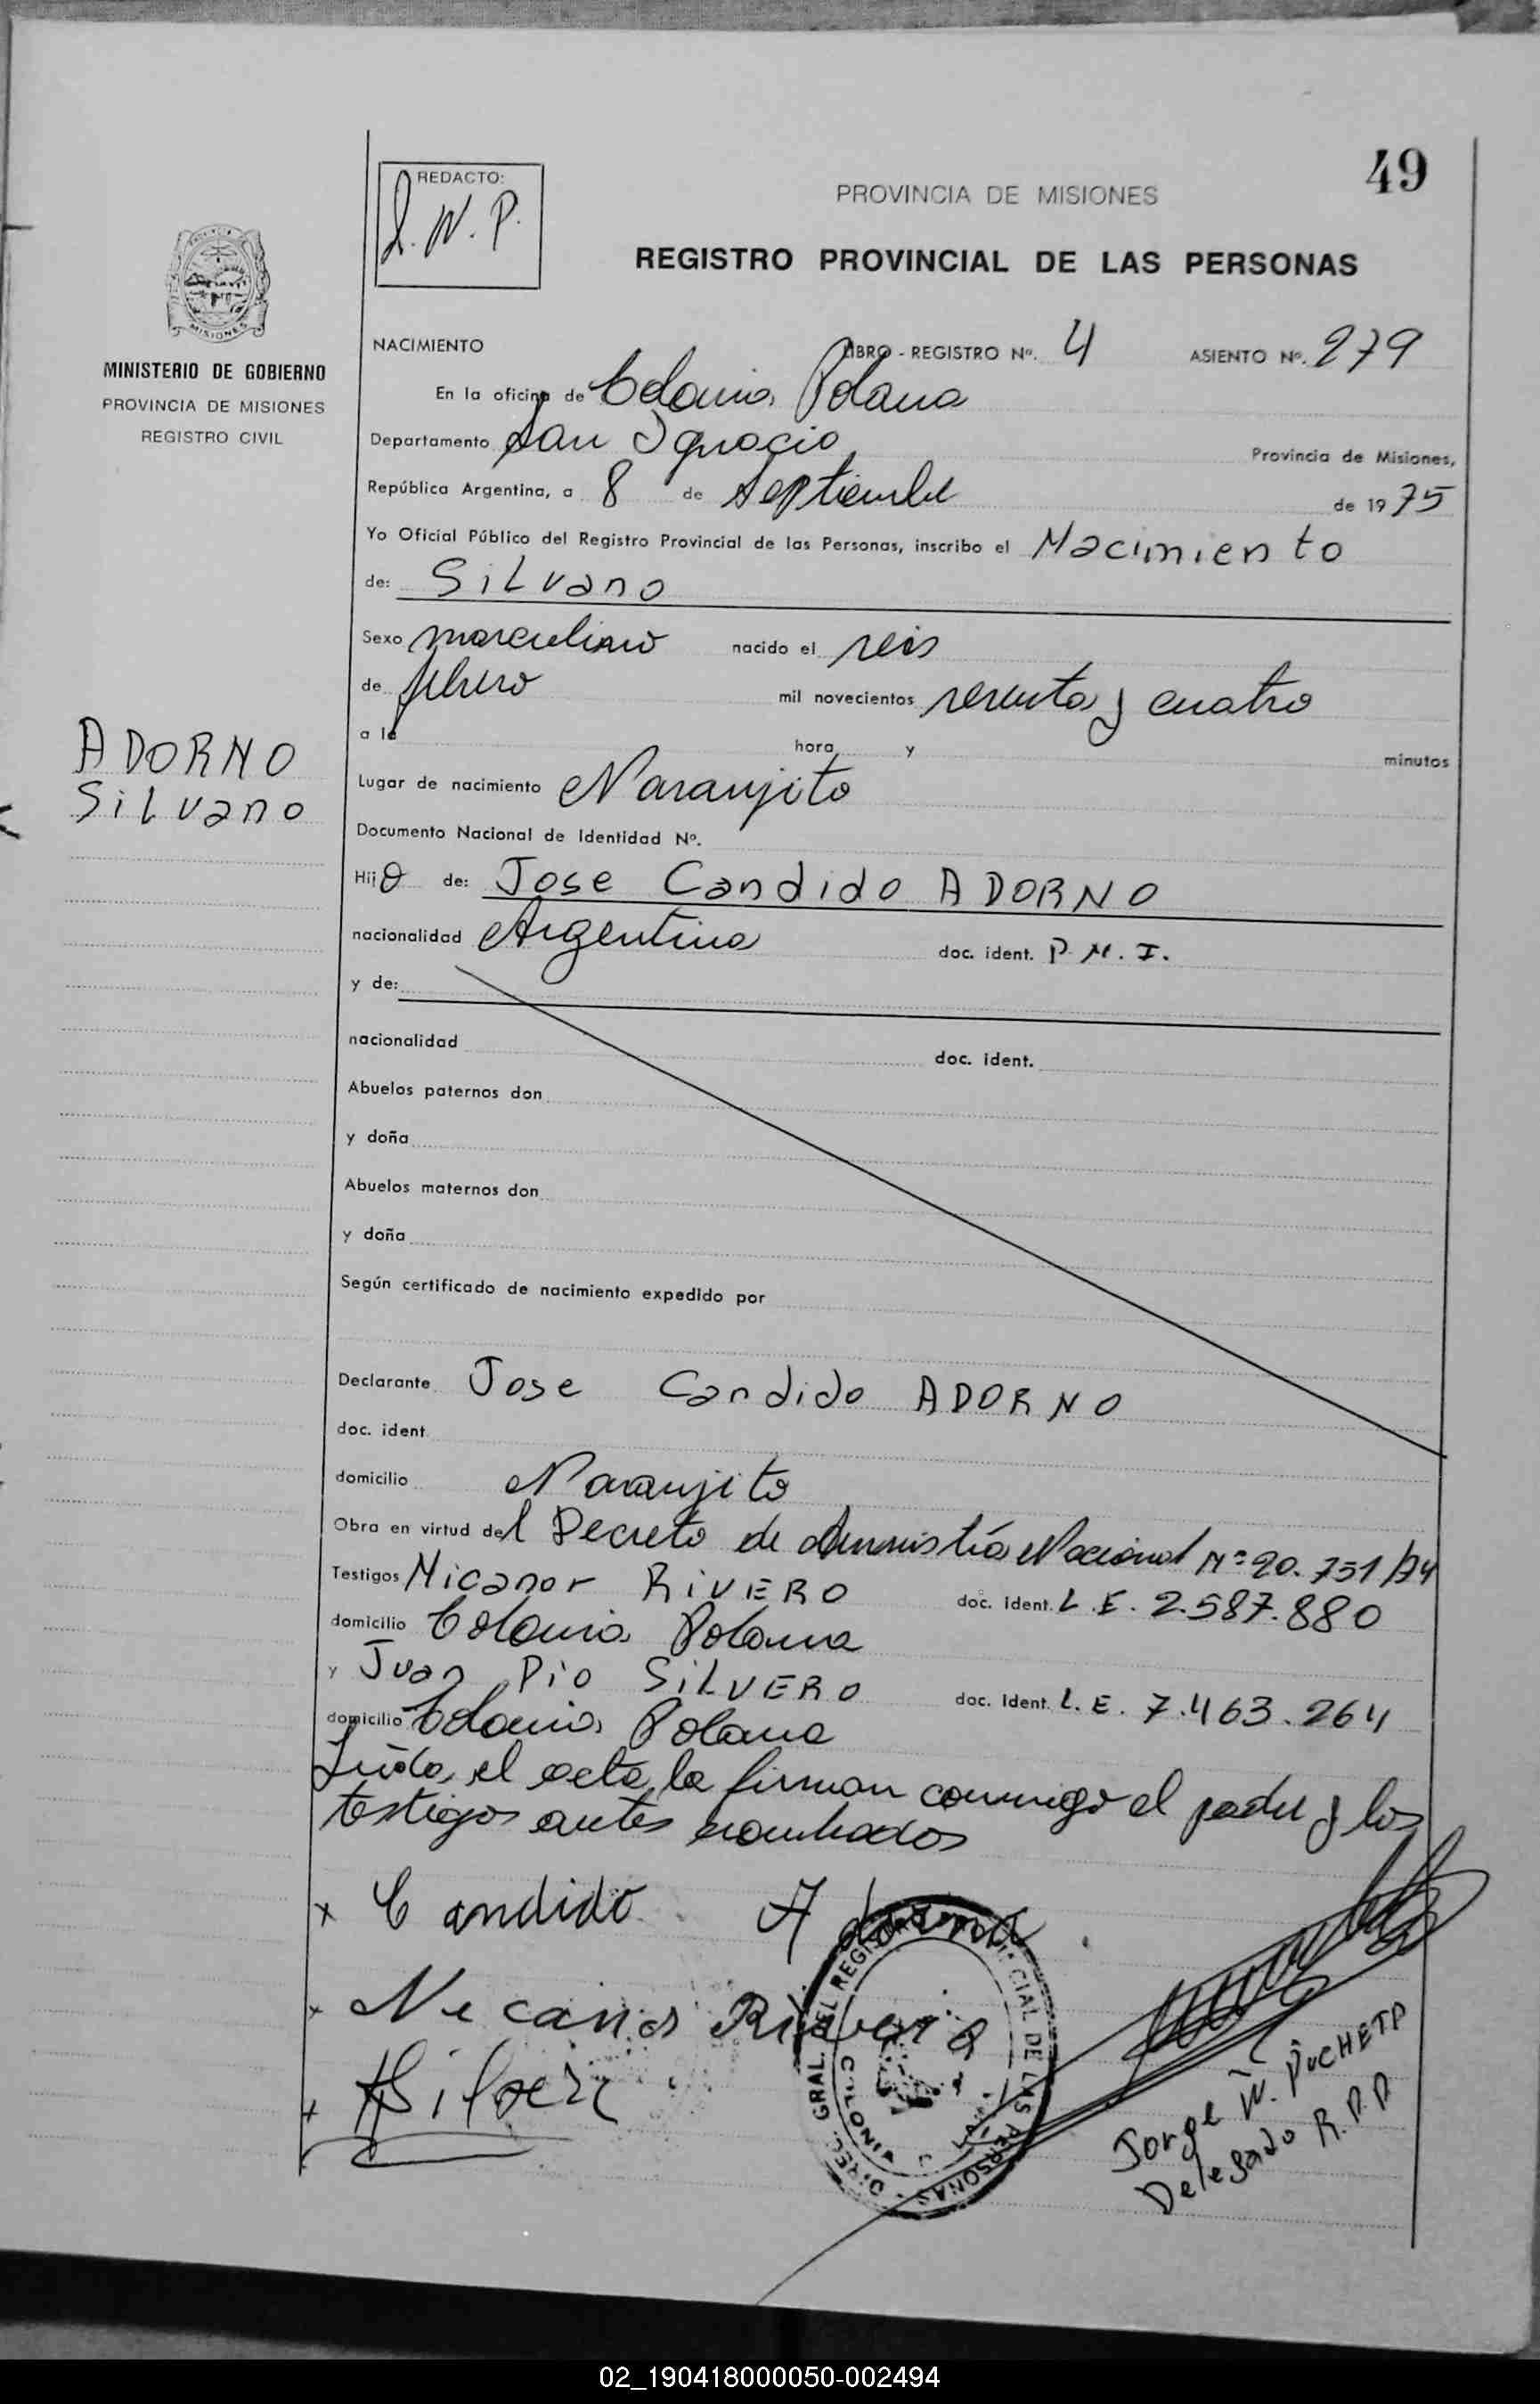 49
REDACTO:
J. W. P.
PROVINCIA DE MISIONES
REGISTRO PROVINCIAL DE LAS PERSONAS
MISIONES
MINISTERIO DE GOBIERNO
PROVINCIA DE MISIONES
REGISTRO CIVIL
NACIMIENTO LIBRO - REGISTRO Nº. 4 ASIENTO Nº. 279
En la oficina de Colonia Polana
Departamento San Ignacio Provincia de Misiones,
República Argentina, a 8 de Septiembre de 1975
Yo Oficial Público del Registro Provincial de las Personas, inscribo el Nacimiento
de: SiLvano
Sexo masculino nacido el seis
de febrero mil novecientos sesenta y cuatro
a la hora y minutos
ADORNO
SiLvano
Lugar de nacimiento Naranjito
Documento Nacional de Identidad Nº.
Hijo de: Jose Candido ADORNO
nacionalidad Argentina doc. ident. P. N. I.
y de:
nacionalidad doc. ident.
Abuelos paternos don
y doña
Abuelos maternos don
y doña
Según certificado de nacimiento expedido por
Declarante Jose Candido ADORNO
doc. ident.
domicilio Naranjito
Obra en virtud del Decreto de Amnistía Nacional Nº 20.751/74
Testigos Nicanor RiVERO doc. ident. L.E. 2.587.880
domicilio Colonia Polana
y Juan Pio SiLVERO doc. ident. L.E. 7.463.264
domicilio Colonia Polana
Leída el acta, la firman conmigo el padre y los
testigos antes nombrados
x Candido Adorno
x Necanor Rivero
x
DIREC. GRAL. DEL REGISTRO PROVINCIAL DE LAS PERSONAS
COLONIA
Jorge W. DUCHETP
Delegado R.P.P
02_190418000050-002494